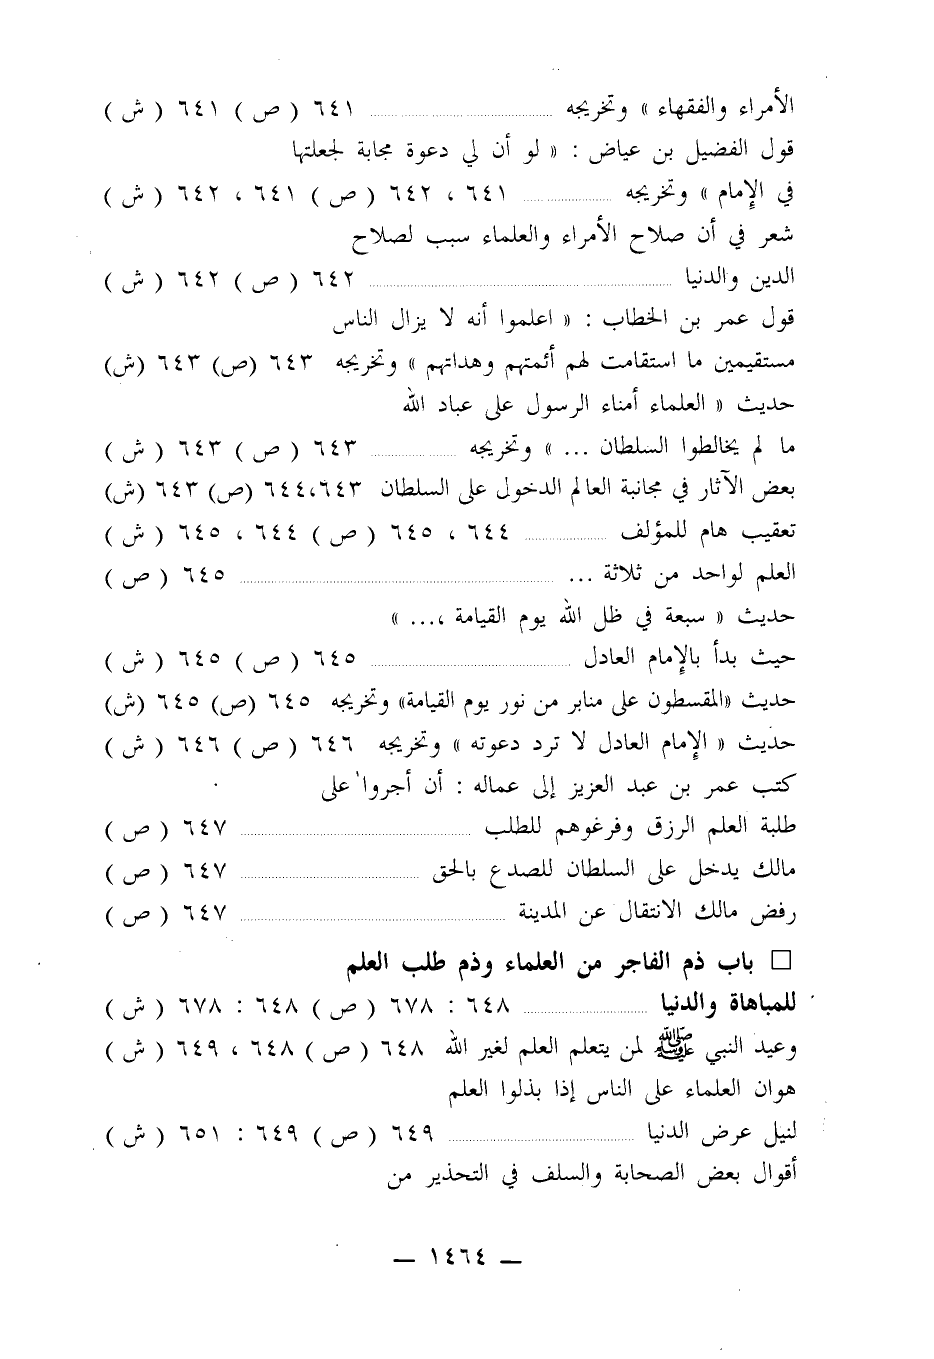 الأمراء والفقهاء » وتخريجه ........ ٦٤١ ( ص ) ٦٤١ ( ش )
قول الفضيل بن عياض : « لو أن لي دعوة مجابة لجعلتها
في الإمام » وتخريجه ........ ٦٤١ ، ٦٤٢ ( ص ) ٦٤١ ، ٦٤٢ ( ش )
شعر في أن صلاح الأمراء والعلماء سبب لصلاح
الدين والدنيا ........ ٦٤٢ ( ص ) ٦٤٢ ( ش )
قول عمر بن الخطاب : « اعلموا أنه لا يزال الناس
مستقيمين ما استقامت لهم أئمتهم وهداتهم » وتخريجه ٦٤٣ (ص) ٦٤٣ (ش)
حديث « العلماء أمناء الرسول على عباد الله
ما لم يخالطوا السلطان ... » وتخريجه ........ ٦٤٣ ( ص ) ٦٤٣ ( ش )
بعض الآثار في مجانبة العالم الدخول على السلطان ٦٤٣،٦٤٤ (ص) ٦٤٣ (ش)
تعقيب هام للمؤلف ........ ٦٤٤ ، ٦٤٥ ( ص ) ٦٤٤ ، ٦٤٥ ( ش )
العلم لواحد من ثلاثة ... ........ ٦٤٥ ( ص )
حديث « سبعة في ظل الله يوم القيامة ،... »
حيث بدأ بالإمام العادل ........ ٦٤٥ ( ص ) ٦٤٥ ( ش )
حديث «المقسطون على منابر من نور يوم القيامة» وتخريجه ٦٤٥ (ص) ٦٤٥ (ش)
حديث « الإمام العادل لا ترد دعوته » وتخريجه ٦٤٦ ( ص ) ٦٤٦ ( ش )
كتب عمر بن عبد العزيز إلى عماله : أن أجروا على
طلبة العلم الرزق وفرغوهم للطلب ........ ٦٤٧ ( ص )
مالك يدخل على السلطان للصدع بالحق ........ ٦٤٧ ( ص )
رفض مالك الانتقال عن المدينة ........ ٦٤٧ ( ص )
□ باب ذم الفاجر من العلماء وذم طلب العلم
للمباهاة والدنيا ........ ٦٤٨ : ٦٧٨ ( ص ) ٦٤٨ : ٦٧٨ ( ش )
وعيد النبي ﷺ لمن يتعلم العلم لغير الله ٦٤٨ ( ص ) ٦٤٨ ، ٦٤٩ ( ش )
هوان العلماء على الناس إذا بذلوا العلم
لنيل عرض الدنيا ........ ٦٤٩ ( ص ) ٦٤٩ : ٦٥١ ( ش )
أقوال بعض الصحابة والسلف في التحذير من
— ١٤٦٤ —